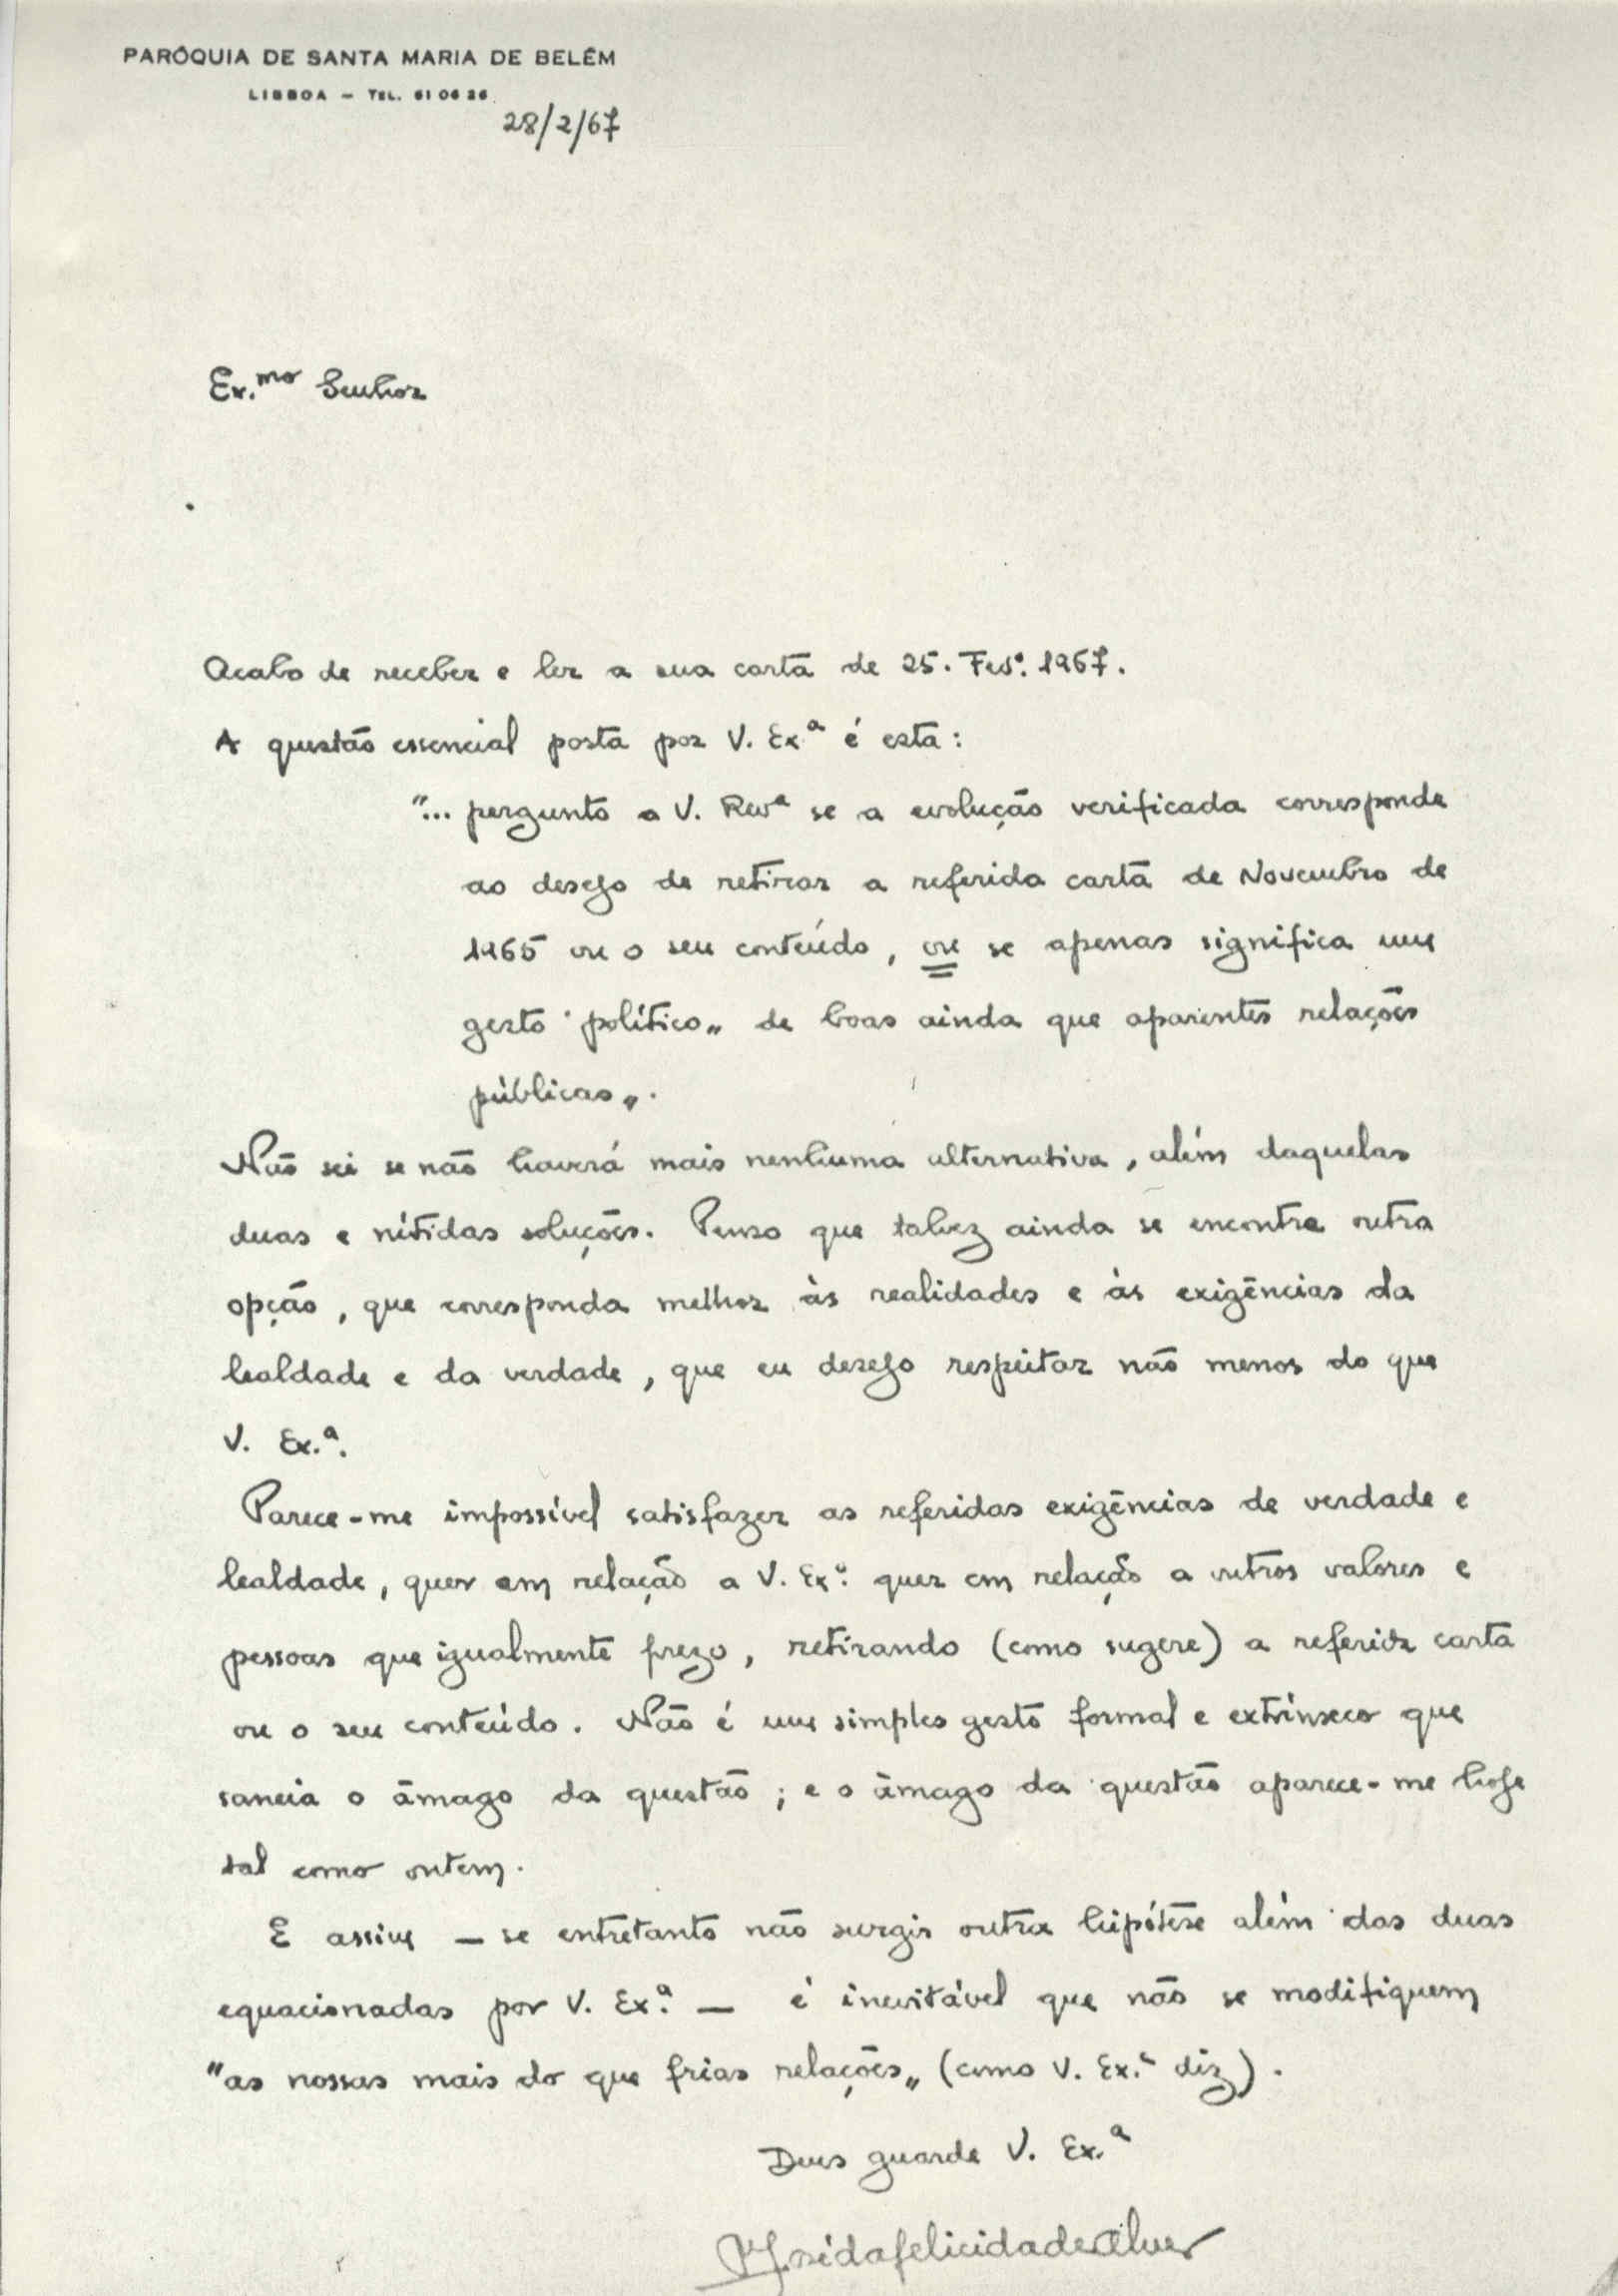 PARÓQUIA DE SANTA MARIA DE BELÉM
LISBOA — TEL. 61 06 26
28/2/67
Ex.mo Senhor
Acabo de receber e ler a sua carta de 25. Fevº. 1967.
A questão essencial posta por V. Exª é esta:
"... pergunto a V. Revª se a evolução verificada corresponde
ao desejo de retirar a referida carta de Novembro de
1965 ou o seu conteúdo, ou se apenas significa um
gesto "político" de boas ainda que aparentes relações
públicas".
Não sei se não haverá mais nenhuma alternativa, além daquelas
duas e nítidas soluções. Penso que talvez ainda se encontre outra
opção, que corresponda melhor às realidades e às exigências da
lealdade e da verdade, que eu desejo respeitar não menos do que
V. Ex.ª.
Parece-me impossível satisfazer as referidas exigências de verdade e
lealdade, quer em relação a V. Exª. quer em relação a outros valores e
pessoas que igualmente prezo, retirando (como sugere) a referida carta
ou o seu conteúdo. Não é um simples gesto formal e extrínseco que
saneia o âmago da questão; e o âmago da questão aparece-me hoje
tal como ontem.
E assim — se entretanto não surgir outra hipótese além das duas
equacionadas por V. Ex.ª — é inevitável que não se modifiquem
"as nossas mais do que frias relações" (como V. Ex.ª diz).
Deus guarde V. Ex.ª
José da Felicidade Alves